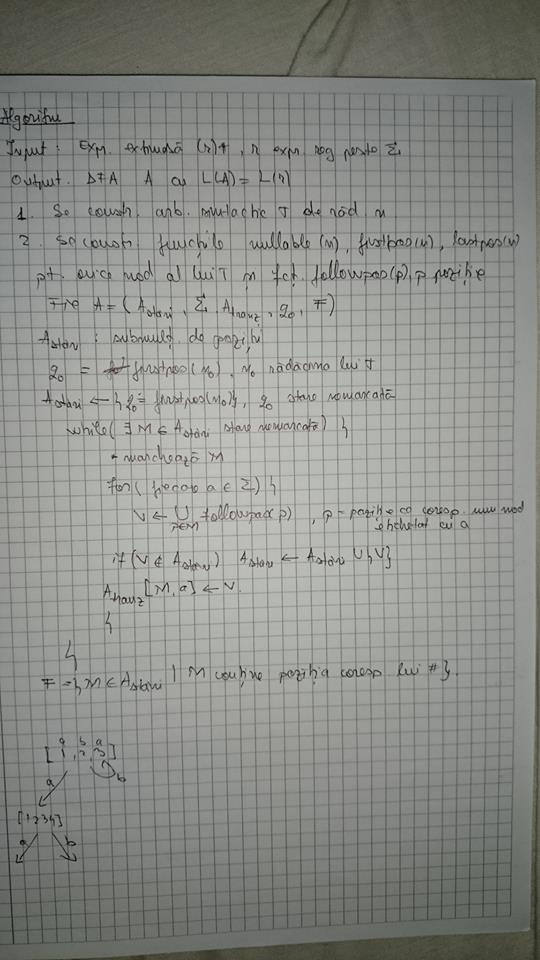 Algoritm
Input : Expr. extinsă (r)#, r expr. reg peste Σ
Output. DFA A cu L(A) = L(r)
1. Se constr. arb. sintactic T de răd. n
2. Se constr. funcțiile nullable(n), firstpos(n), lastpos(n)
pt. orice nod al lui T și fct. followpos(p), p poziție
Fie A = (Astări, Σ, Atranz, q0, F)
Astări : submulț. de poziții
q0 = firstpos(n0), n0 rădăcina lui T
Astări ← { q0 = firstpos(n0)}, q0 stare nemarcată
while( ∃ M ∈ Astări stare nemarcată) {
- marchează M
for( fiecare a ∈ Σ) {
V ← ⋃ p∈M followpos(p) , p - poziție ce coresp. unui nod
etichetat cu a
if (V ∉ Astări) Astări ← Astări ∪ {V}
Atranz [M, a] ← V.
}
}
F = { M ∈ Astări | M conține poziția coresp lui # }.
a b a
[ 1, 2, 3 ]
b
a
[1234]
a b